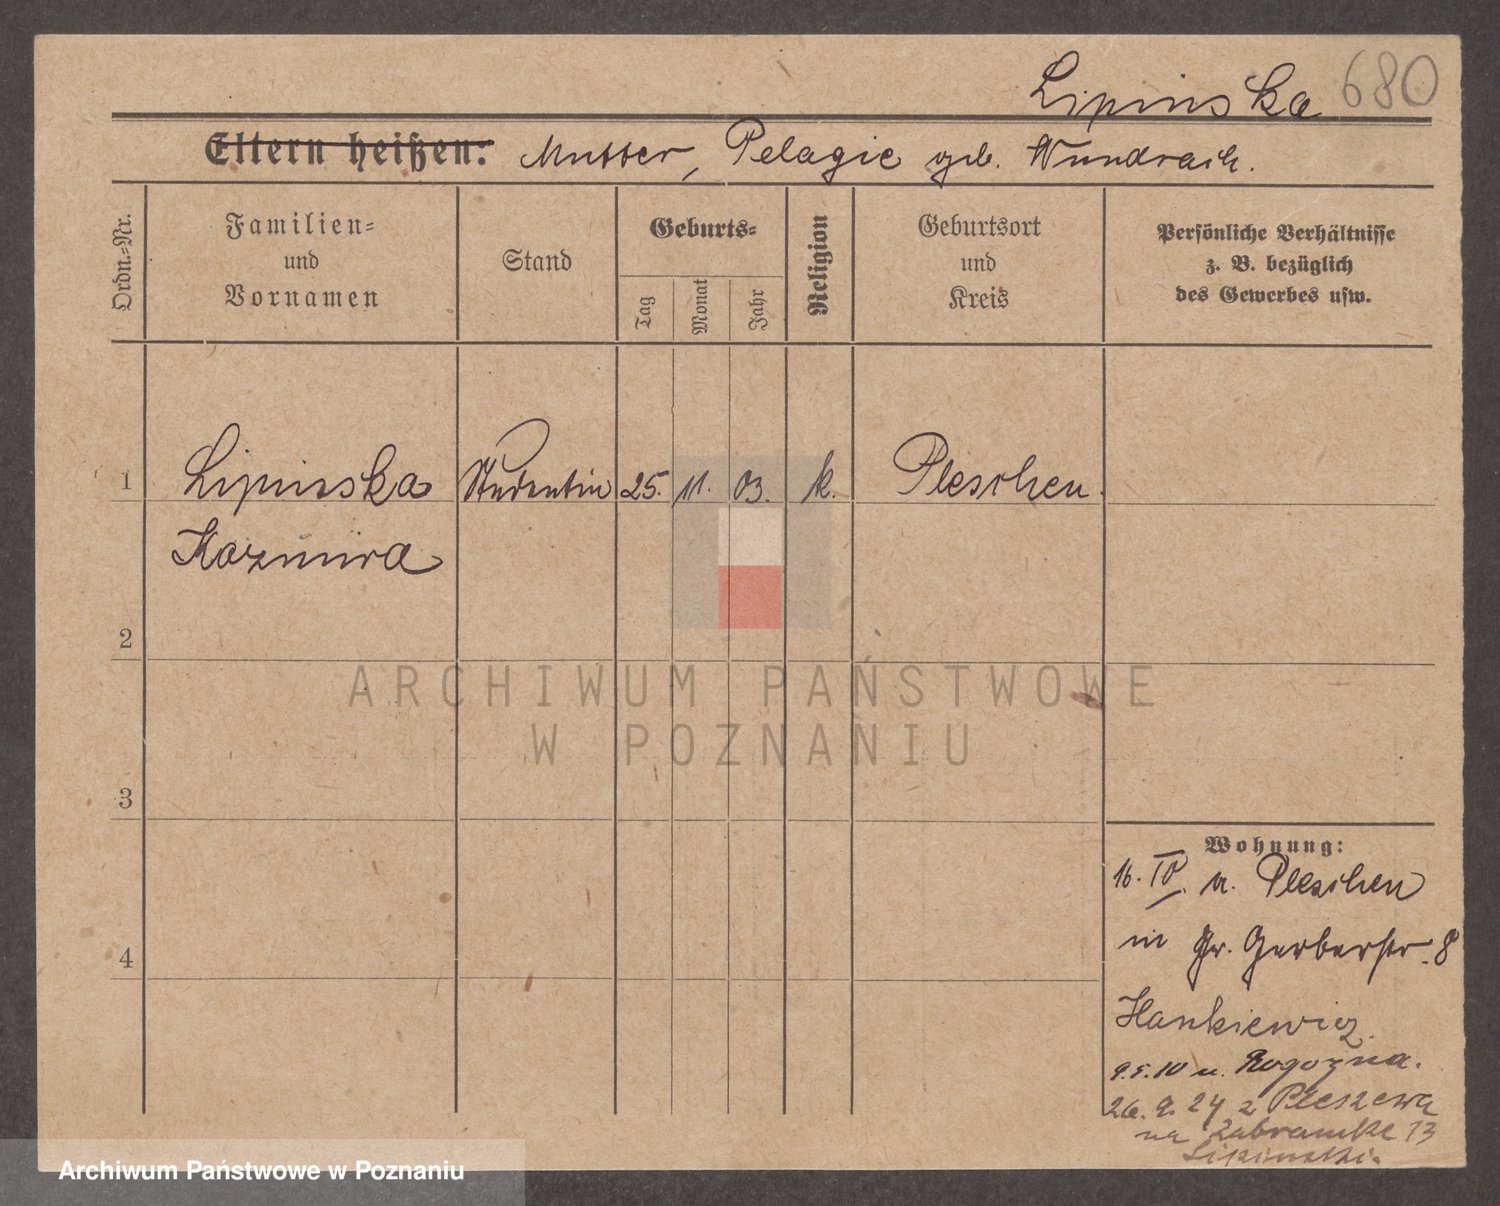 Lipinska 680
Eltern heißen: Mutter, Pelagie geb. Wundrach.
Ordn.-Nr.
Familien-
und
Vornamen
Stand
Geburts-
Tag
Monat
Jahr
Religion
Geburtsort
und
Kreis
Persönliche Verhältnisse
z. B. bezüglich
des Gewerbes usw.
1 Lipinska Studentin 25. 11. 03. k. Pleschen.
Kazmira
2
3
4
Wohnung:
16. IV. v. Pleschen
in Gr. Gerberstr. 8
Hankiewicz.
9.5.10 n. Rogozna.
26.9.24 z Pleszewa
na Zabramke 13
Lipinski.
ARCHIWUM PAŃSTWOWE
W POZNANIU
Archiwum Państwowe w Poznaniu